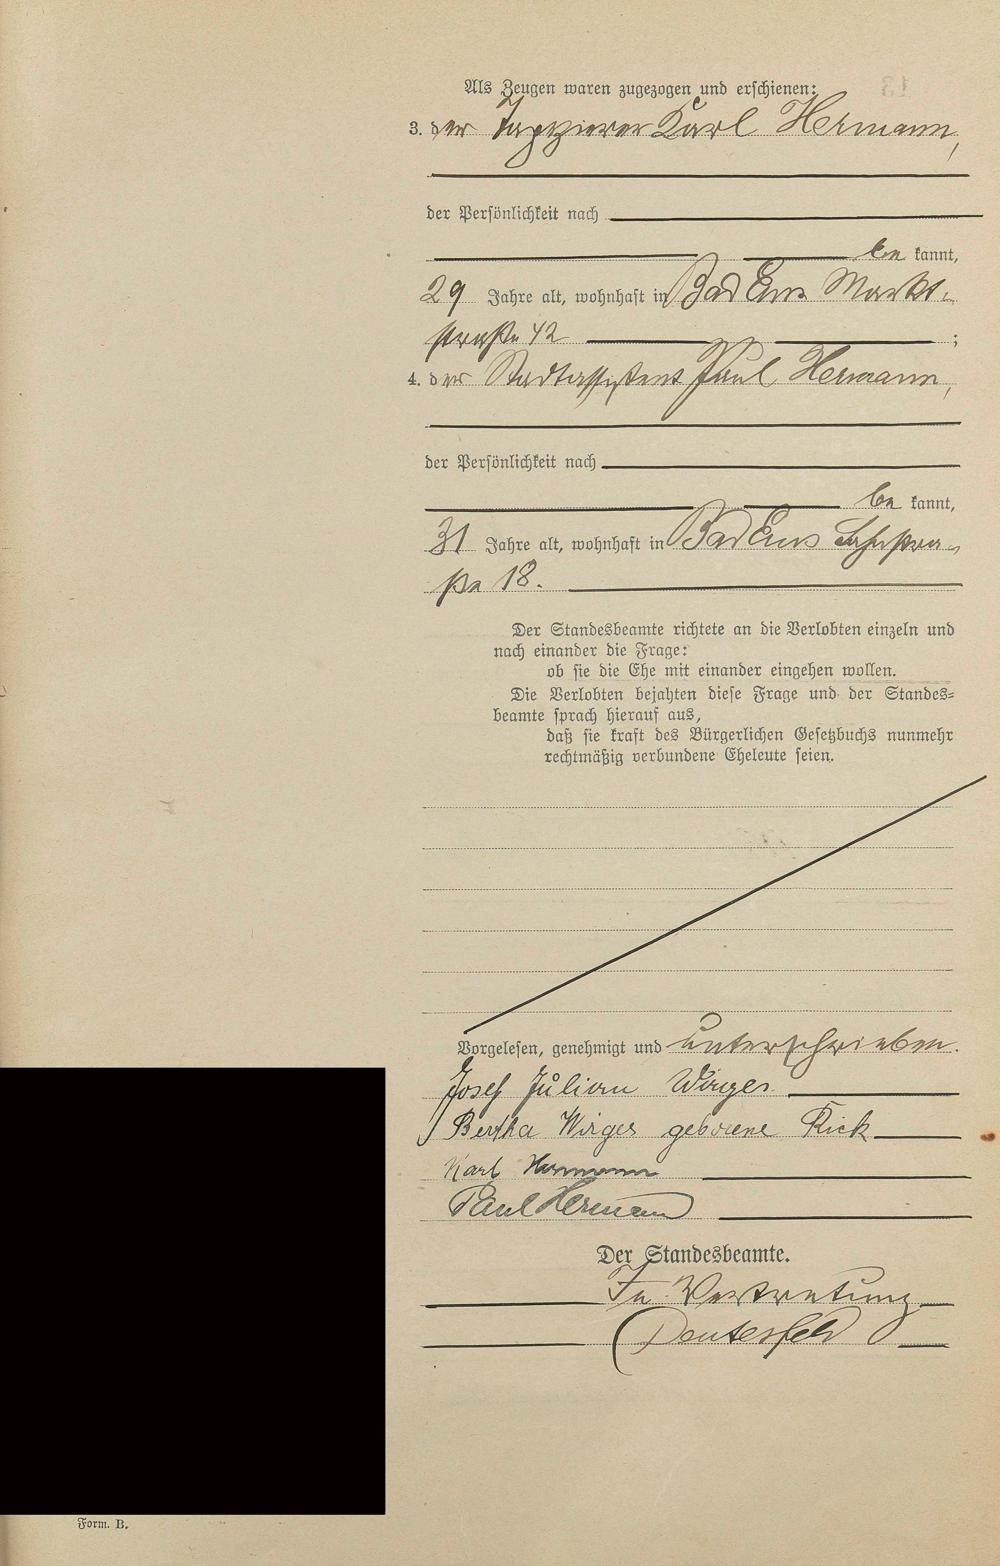 Als Zeugen waren zugezogen und erschienen:
3. der Tapezierer Karl Hermann,
der Persönlichkeit nach
be kannt,
29 Jahre alt, wohnhaft in Bad Ems Markt-
straße 42 ;
4. der Stadtassistent Paul Hermann,
der Persönlichkeit nach
be kannt,
31 Jahre alt, wohnhaft in Bad Ems Lahnstra-
ße 18.
Der Standesbeamte richtete an die Verlobten einzeln und
nach einander die Frage:
ob sie die Ehe mit einander eingehen wollen.
Die Verlobten bejahten diese Frage und der Standes-
beamte sprach hierauf aus,
daß sie kraft des Bürgerlichen Gesetzbuchs nunmehr
rechtmäßig verbundene Eheleute seien.
Vorgelesen, genehmigt und unterschrieben.
Josef Julian Wirges
Bertha Wirges geborene Kick
Karl Hermann
Paul Hermann
Der Standesbeamte.
In Vertretung
Form. B.